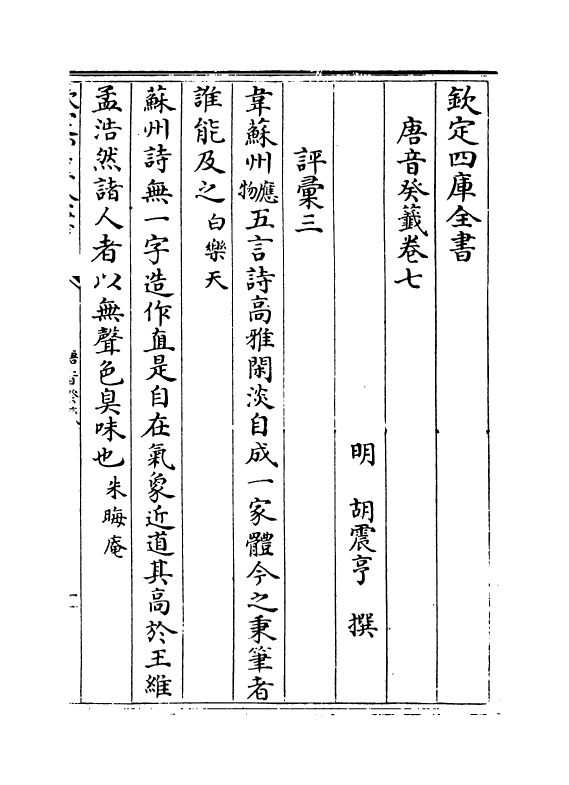 欽定四庫全書
唐音癸籤卷七
明 胡震亨 撰
評彚三
韋蘇州應物五言詩高雅閑淡自成一家體今之秉筆者
誰能及之白樂天
蘇州詩無一字造作直是自在氣象近道其高於王維
孟浩然諸人者以無聲色臭味也朱晦庵